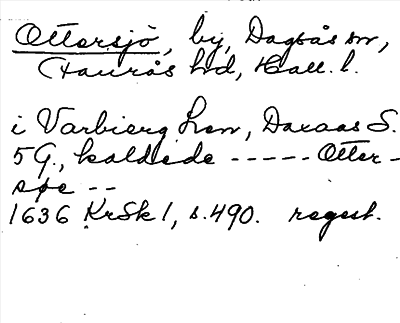 Ottersjö, by, Dagsås sn,
Faurås hd, Hall. l.
i Varbierg Len, Daxaas S.
5 G., kaldede ----- Otter-
søe --
1636 KrSk 1, s. 490. regest.